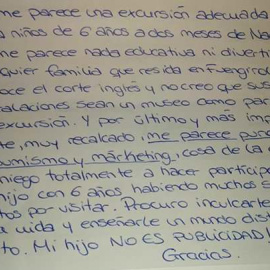 me parece una excursión adecuada
a niños de 6 años a dos meses de Na
me parece nada educativa ni diverti
quier familia que resida en Fuengirol
oce el corte inglés y no creo que sus
alaciones sean un museo como par
excursión. Y por último y mas imp
te, muy recalcado, me parece pur
sumismo y márketing, cosa de la q
niego totalmente a hacer participe
hijo con 6 años habiendo muchos s
tos por visitar. Procuro inculcarle
a vida y enseñarle un mundo dist
to. Mi hijo NO ES PUBLICIDAD!
Gracias.